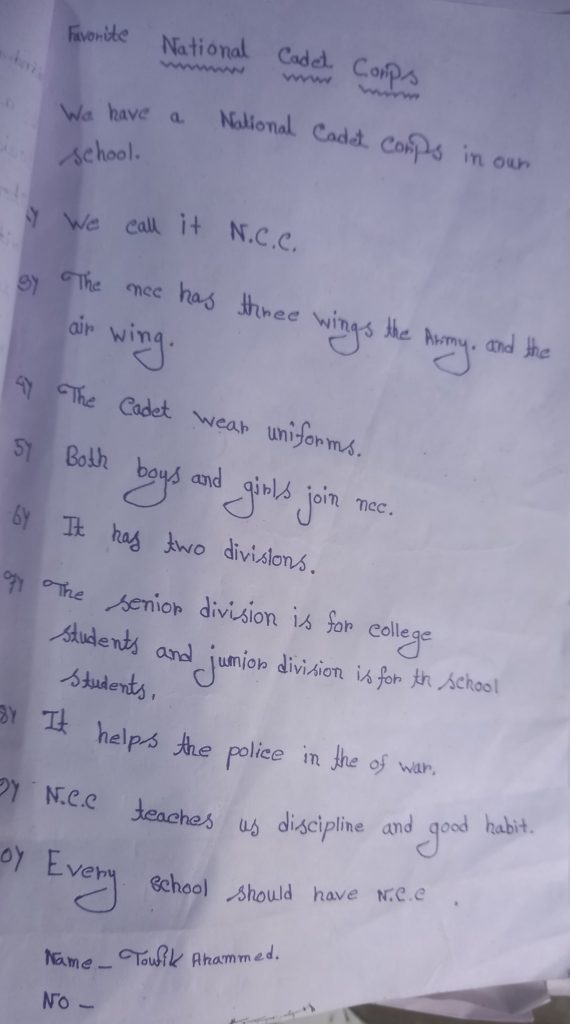 Favorite National Cadet Corps
We have a National Cadet Corps in our
school.
We call it N.C.C.
3) The ncc has three wings the Army. and the
air wing.
4) The Cadet wear uniforms.
5) Both boys and girls join ncc.
6) It has two divisions.
7) The senior division is for college
students and junior division is for th school
students,
8) It helps the police in the of war.
9) N.C.C teaches us discipline and good habit.
0) Every school should have N.C.C.
Name – Toufik Ahammed.
NO –